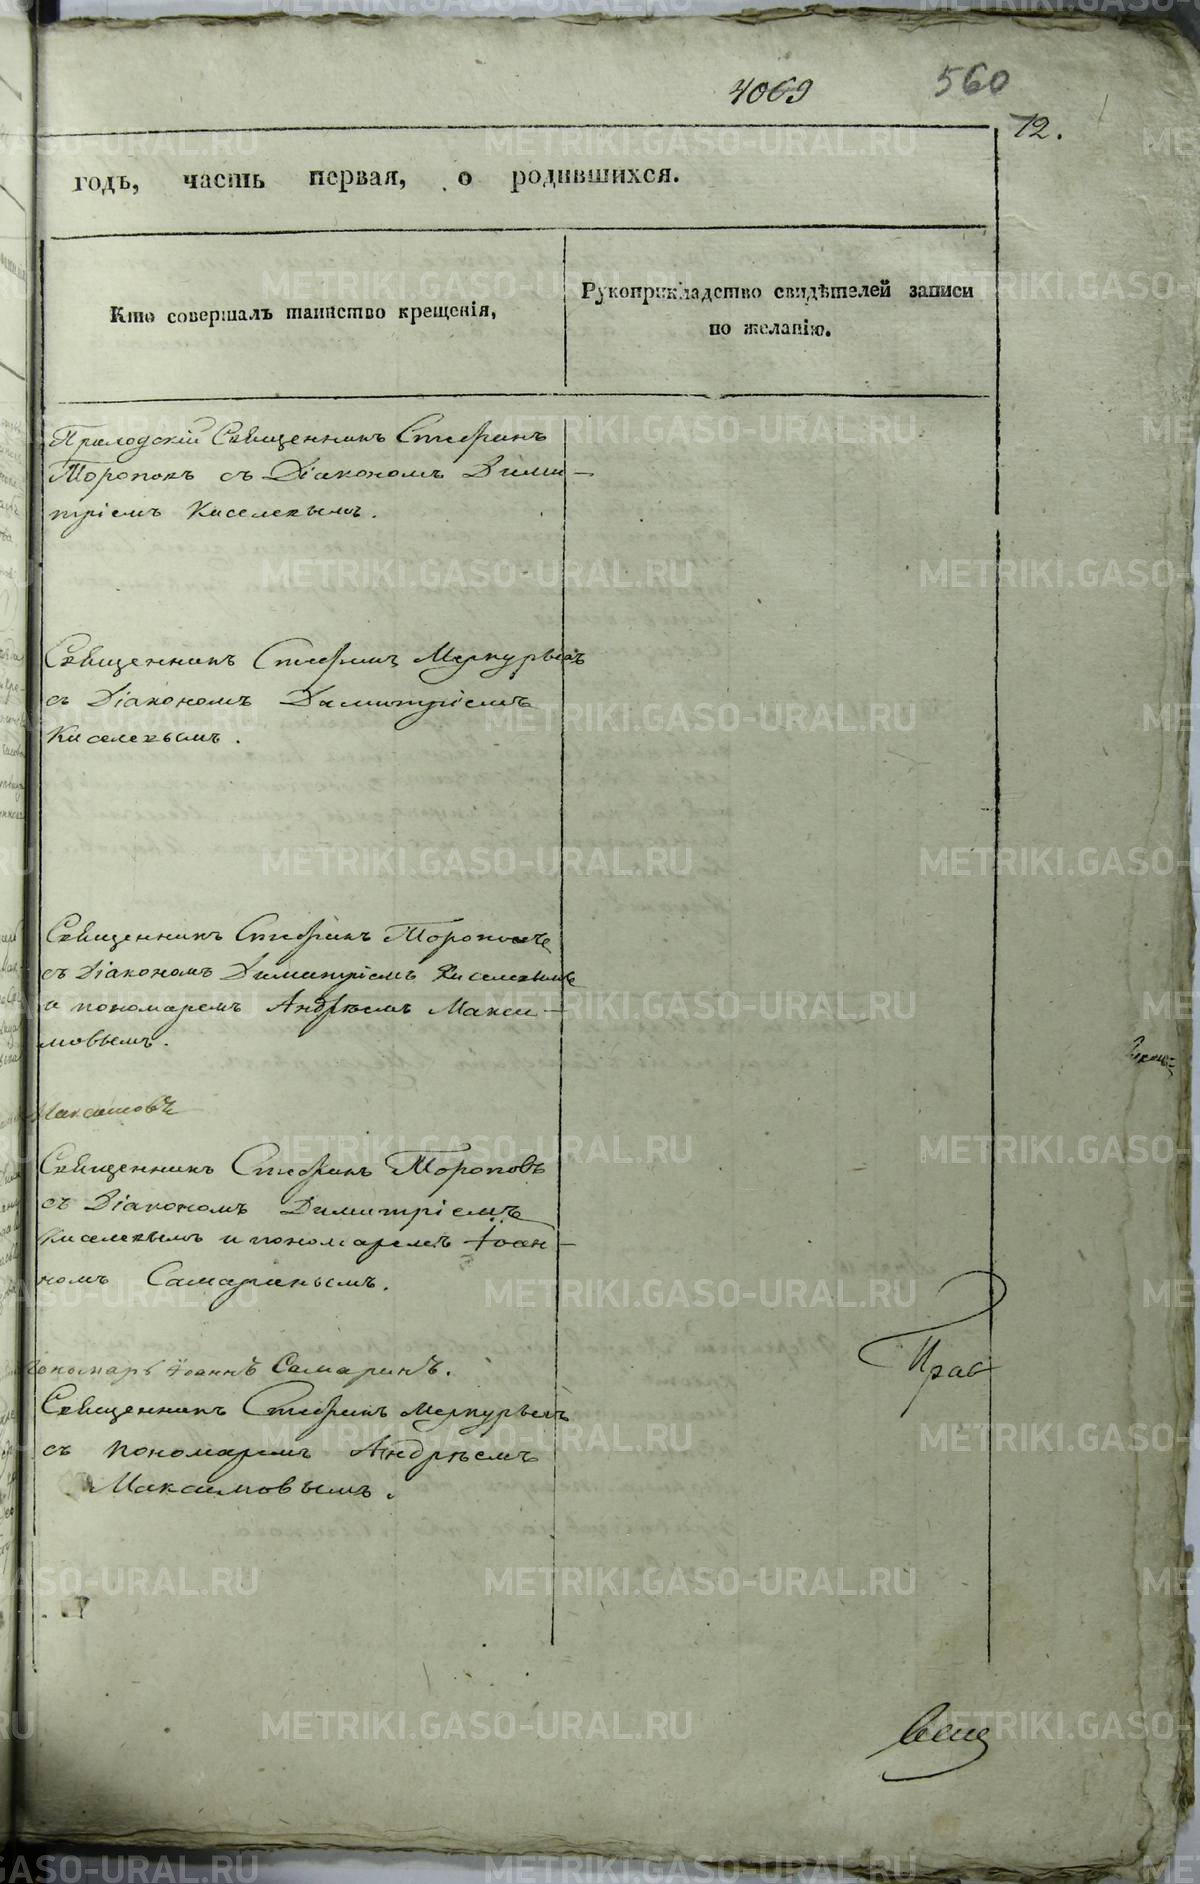 4069 560
12.
годъ, часть первая, о родившихся.
Кто совершалъ таинство крещенія,
Рукоприкладство свидѣтелей записи
по желанію.
Приходскій Священникъ Стефанъ
Тороповъ съ Діакономъ Дими-
тріемъ Киселевымъ.
Священникъ Стефанъ Меркурьевъ
съ Діакономъ Димитріемъ
Киселевымъ.
Священникъ Стефанъ Тороповъ
съ Діакономъ Димитріемъ Киселевымъ
и пономаремъ Андрѣемъ Макси-
мовымъ.
Максимовъ
Священникъ Стефанъ Тороповъ
съ Діакономъ Димитріемъ
Киселевымъ и пономаремъ Іоан-
номъ Самаринымъ.
Пономарь Іоаннъ Самаринъ.
Священникъ Стефанъ Меркурьевъ
съ пономаремъ Андрѣемъ
Максимовымъ.
Прав
METRIKI.GASO-URAL.RU